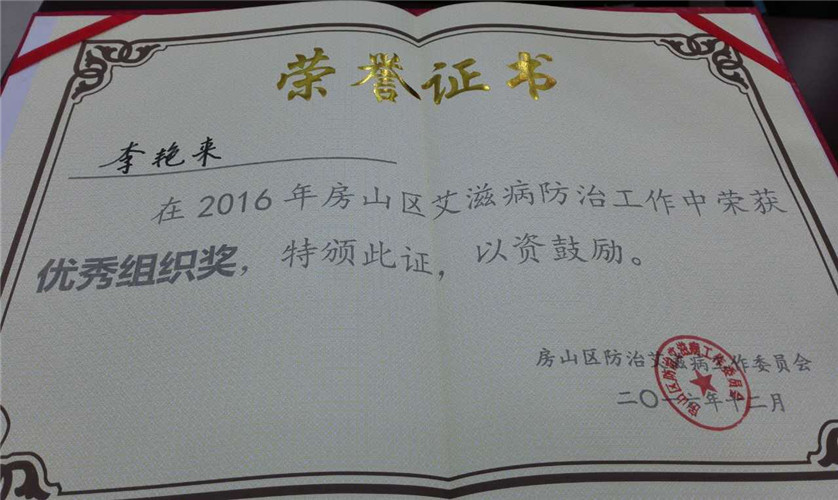 荣誉证书
李艳来
在2016年房山区艾滋病防治工作中荣获
优秀组织奖，特颁此证，以资鼓励。
房山区防治艾滋病工作委员会
二〇一六年十二月
房山区防治艾滋病工作委员会